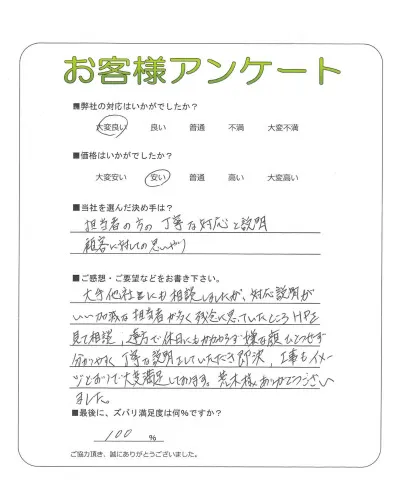 お客様アンケート
■弊社の対応はいかがでしたか？
大変良い 良い 普通 不満 大変不満
■価格はいかがでしたか？
大変安い 安い 普通 高い 大変高い
■当社を選んだ決め手は？
担当者の方の丁寧な対応と説明
顧客に対しての思いやり
■ご感想・ご要望などをお書き下さい。
大手他社にも相談しましたが、対応説明が
いい加減な担当者が多く残念に思っていたところHPを
見て相談，遠方で休日にもかかわらず嫌な顔ひとつせず
分かりやすく丁寧な説明をしていただき即決，工事もイメ
ージどおりで大変満足しております。荒木様ありがとうござい
ました。
■最後に、ズバリ満足度は何%ですか？
100 %
ご協力頂き、誠にありがとうございました。